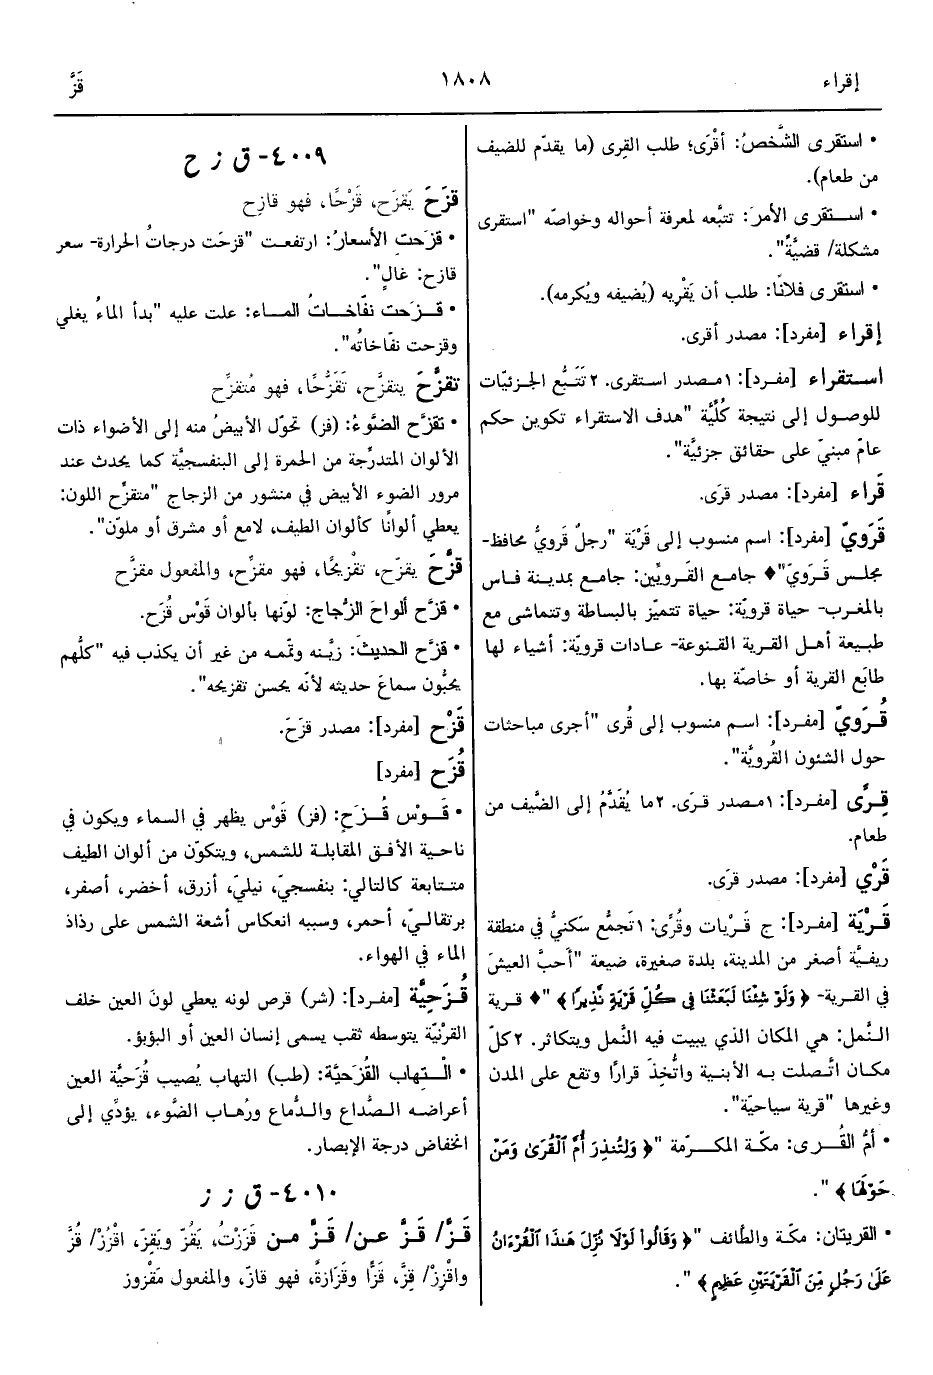 إقراء ١٨٠٨ قَزَّ
• استقرى الشَّخصُ: أقْرَى؛ طلب القِرى (ما يقدّم للضيف
من طعام).
• استقرى الأمرَ: تتبَّعه لمعرفة أحواله وخواصّه "استقرى
مشكلة/ قضيَّةً".
• استقرى فلانًا: طلب أن يَقْريه (يُضيفه ويُكرمه).
إقراء [مفرد]: مصدر أقرى.
استقراء [مفرد]: ١مصدر استقرى. ٢تَتَبُّع الجزئيّات
للوصول إلى نتيجة كُلِّيَّة "هدف الاستقراء تكوين حكم
عامّ مبنيّ على حقائق جزئيَّة".
قَراء [مفرد]: مصدر قرَى.
قَرَويّ [مفرد]: اسم منسوب إلى قَرْيَة "رجلٌ قَرويٌّ محافظ-
مجلس قَرَويّ"♦ جامع القَرويِّين: جامع بمدينة فاس
بالمغرب- حياة قرويّة: حياة تتميّز بالبساطة وتتماشى مع
طبيعة أهل القرية القنوعة- عادات قرويّة: أشياء لها
طابَع القرية أو خاصّة بها.
قُرَويّ [مفرد]: اسم منسوب إلى قُرى "أجرى مباحثات
حول الشئون القُرويَّة".
قِرًى [مفرد]: ١مصدر قرَى. ٢ما يُقَدَّمُ إلى الضَّيف من
طعام.
قَرْي [مفرد]: مصدر قرَى.
قَرْيَة [مفرد]: ج قَرْيات وقُرًى: ١تجمُّع سَكنيٌّ في منطقة
ريفيَّة أصغر من المدينة، بلدة صغيرة، ضيعة "أحبَّ العيشَ
في القرية- ﴿وَلَوْ شِئْنَا لَبَعَثْنَا فِي كُلِّ قَرْيَةٍ نَذِيرًا﴾"♦ قرية
النَّمل: هي المكان الذي يبيت فيه النَّمل ويتكاثر. ٢كلّ
مكان اتَّصلت به الأبنية واتُّخِذَ قرارًا وتقع على المدن
وغيرها "قرية سياحيّة".
• أمّ القُرى: مكّة المكرّمة "﴿وَلِتُنذِرَ أُمَّ الْقُرَىٰ وَمَنْ
حَوْلَهَا﴾".
• القريتان: مكّة والطَّائف "﴿وَقَالُوا لَوْلَا نُزِّلَ هَٰذَا الْقُرْءَانُ
عَلَىٰ رَجُلٍ مِّنَ الْقَرْيَتَيْنِ عَظِيمٍ﴾".
٤٠٠٩- ق ز ح
قزَحَ يَقزَح، قَزْحًا، فهو قازِح
• قزَحتِ الأسعارُ: ارتفعت "قزحَت درجاتُ الحرارة- سعر
قازح: غالٍ".
• قزَحت نفّاخاتُ الماء: علت عليه "بدأ الماءُ يغلي
وقزحت نفّاخاتُه".
تقزَّحَ يتقزَّح، تَقَزُّحًا، فهو مُتقزِّح
• تقزَّح الضَّوءُ: (فز) تحوّل الأبيضُ منه إلى الأضواء ذات
الألوان المتدرِّجة من الحمرة إلى البنفسجيَّة كما يحدث عند
مرور الضوء الأبيض في منشور من الزجاج "متقزِّح اللون:
يعطي ألوانًا كألوان الطيف، لامع أو مشرق أو ملوّن".
قزَّحَ يقزّح، تقْزيحًا، فهو مقزِّح، والمفعول مقزَّح
• قزَّح ألواحَ الزُّجاج: لوّنها بألوان قَوْس قُزَح.
• قزَّح الحديثَ: زيَّنه وتمَّمه من غير أن يكذب فيه "كلُّهم
يحبُّون سماعَ حديثه لأنّه يحسن تقزيحه".
قَزْح [مفرد]: مصدر قزَحَ.
قُزَح [مفرد]
• قَوْس قُزَحٍ: (فز) قَوْس يظهر في السماء ويكون في
ناحية الأفق المقابلة للشمس، ويتكوّن من ألوان الطيف
متتابعة كالتالي: بنفسجيّ، نيليّ، أزرق، أخضر، أصفر،
برتقاليّ، أحمر، وسببه انعكاس أشعة الشمس على رذاذ
الماء في الهواء.
قُزَحيَّة [مفرد]: (شر) قرص لونه يعطي لونَ العين خلف
القرْنيّة يتوسطه ثقب يسمى إنسان العين أو البؤبؤ.
• الْتِهاب القُزَحيّة: (طب) التهاب يُصيب قُزَحيَّة العين
أعراضه الصُّداع والدُّماع ورُهاب الضَّوء، يؤدِّي إلى
انخفاض درجة الإبصار.
٤٠١٠- ق ز ز
قَزَّ/ قَزَّ عن/ قَزَّ من قَزَزْتُ، يَقُزّ ويَقِزّ، اقْزُزْ/ قُزَّ
واقْزِزْ/ قِزَّ، قَزًّا وقَزازةً، فهو قازّ، والمفعول مَقْزوز